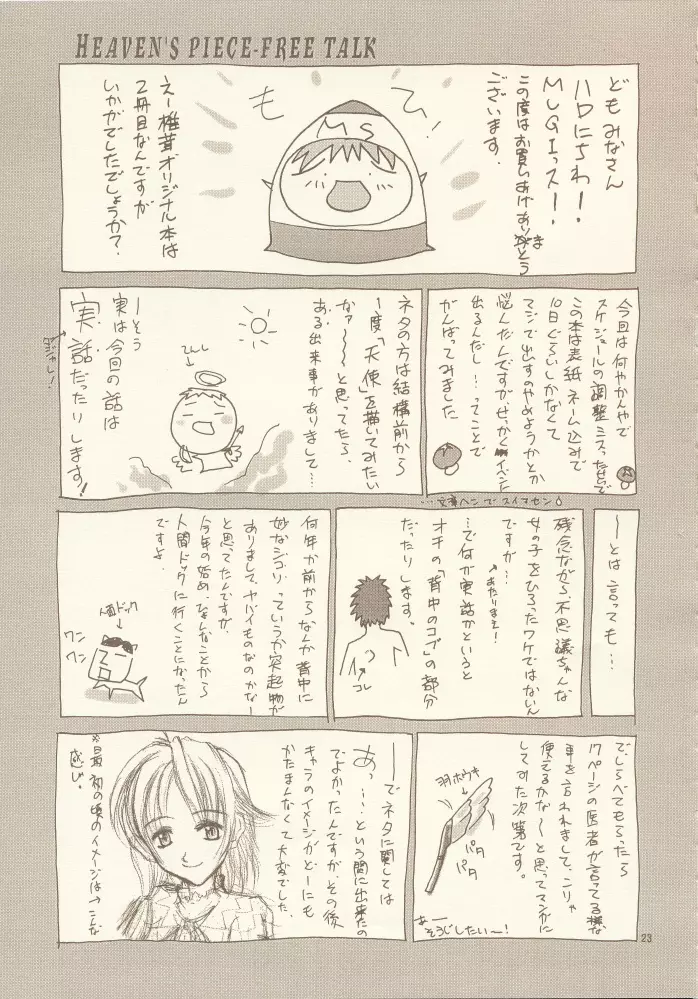 HEAVEN'S PIECE-FREE TALK
どもみなさん
ハロにちわー!
MUGIっスー!
この度はお買いあげありがとう
ございます。
ま
ひ!
も
MS
えー椎茸オリジナル本は
2冊目なんですが
いかがでしたでしょうか?
今回は何やかんやで
スケジュールの調整ミスったせいで
この本は表紙、ネーム込みで
10日ぐらいしかなくて
マジで出すのやめようかとか
悩んだんですがせっかくイベント
出るんだし…ってことで
がんばってみました
ネタの方は結構前から
1度「天使」を描いてみたい
なァ〜〜と思ってたら、
ある出来事がありまして…
てんし
ーとう
実は今回の話は
実話だったりします!
ダジャレ!
…文章ヘンでスイマセン
ーとは言っても…
残念ながら、不思議ちゃんな
女の子をひろったワケではないん
ですが…
あたりまえ!
…で何が実話かというと
オチの「背中のコブ」の部分
だったりします。
コレ
何年か前からなんか背中に
妙なシコリっていうか突起物が
ありまして、ヤバイものなのかなー
と思ってたんですが、
今年の始め、ひょんなことから
人間ドックに行くことになったん
ですよ。
人面ドッグ
ワン
ワン
でしらべてもらったら
17ページの医者が言ってる様な
事を言われまして、こりゃ
使えるかな〜と思ってマンガに
してみた次第です。
羽ホウキ
パタ
パタ
あー
そうじしたい〜!
ーでネタに関しては
あっ…という間に出来たの
でよかったんですが、その後
キャラのイメージがどーにも
かたまんなくて大変でした。
※最初の頃のイメージは→こんな
感じ。
23